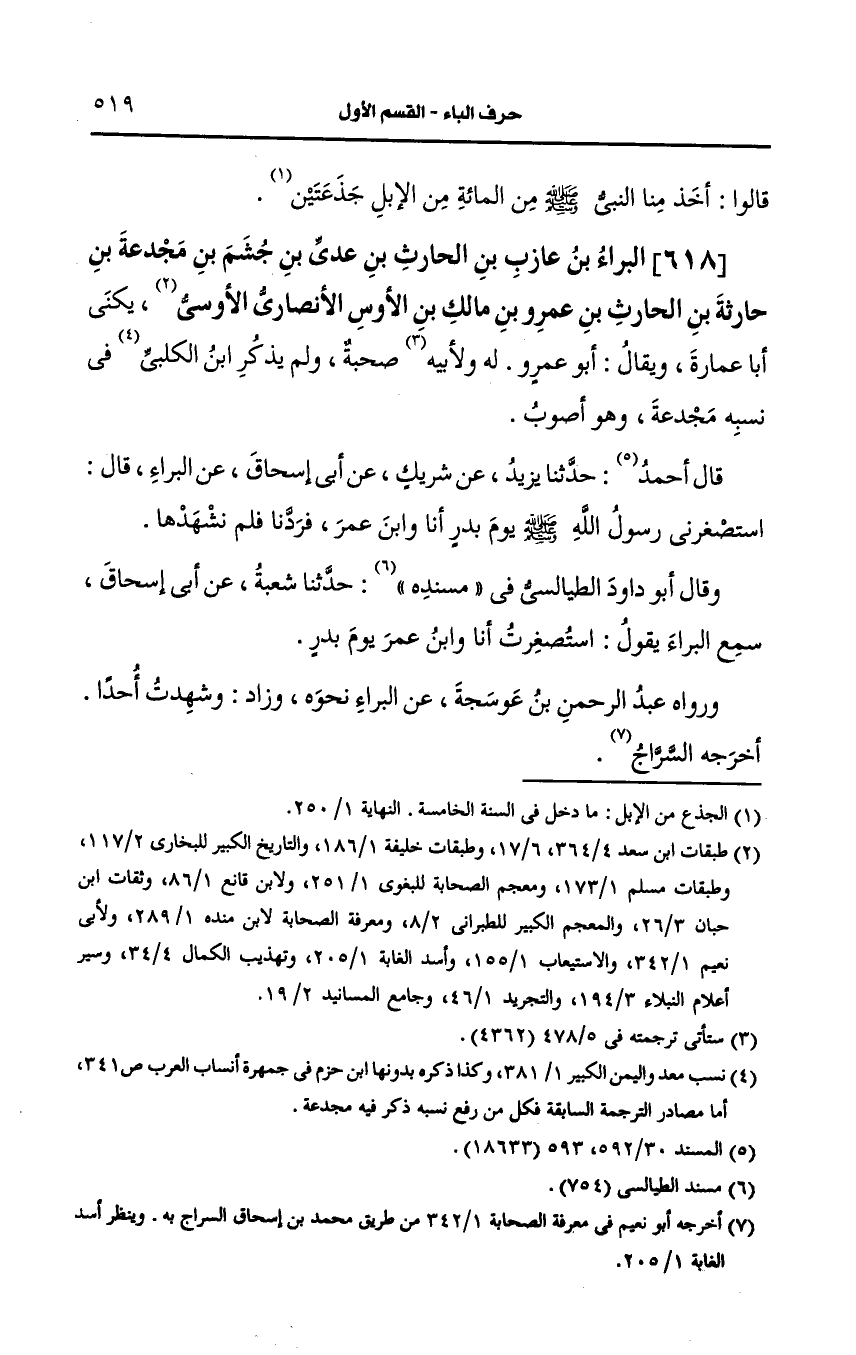 حرف الباء - القسم الأول ٥١٩
قالوا : أخَذ مِنا النبىُّ ﷺ مِن المائةِ مِن الإبلِ جَذَعَتَيْن(١) .
[٦١٨] البراءُ بنُ عازبِ بنِ الحارثِ بنِ عدىِّ بنِ جُشَمَ بنِ مَجْدعةَ بنِ
حارثةَ بنِ الحارثِ بنِ عمرِو بنِ مالكِ بنِ الأوسِ الأنصارىُّ الأوسىُّ(٢) ، يكنَى
أبا عمارةَ ، ويقالُ : أبو عمرٍو . له ولأبيه(٣) صحبةٌ ، ولم يذكُرِ ابنُ الكلبىِّ(٤) فى
نسبِه مَجْدعةَ ، وهو أصوبُ .
قال أحمدُ(٥) : حدَّثنا يزيدُ ، عن شريكٍ ، عن أبى إسحاقَ ، عن البراءِ ، قال :
استصْغرنى رسولُ اللَّهِ ﷺ يومَ بدرٍ أنا وابنَ عمرَ ، فرَدَّنا فلم نشْهَدْها .
وقال أبو داودَ الطيالسىُّ فى « مسندِه »(٦) : حدَّثنا شعبةُ ، عن أبى إسحاقَ ،
سمِع البراءَ يقولُ : استُصغِرتُ أنا وابنُ عمرَ يومَ بدرٍ .
ورواه عبدُ الرحمنِ بنُ عَوسَجةَ ، عن البراءِ نحوَه ، وزاد : وشهِدتُ أُحدًا .
أخرَجه السَّرَّاجُ(٧) .
(١) الجذع من الإبل : ما دخل فى السنة الخامسة . النهاية ١/ ٢٥٠.
(٢) طبقات ابن سعد ٤/ ٣٦٤، ٦/ ١٧، وطبقات خليفة ١/ ١٨٦، والتاريخ الكبير للبخارى ٢/ ١١٧،
وطبقات مسلم ١/ ١٧٣، ومعجم الصحابة للبغوى ١/ ٢٥١، ولابن قانع ١/ ٨٦، وثقات ابن
حبان ٣/ ٢٦، والمعجم الكبير للطبرانى ٢/ ٨، ومعرفة الصحابة لابن منده ١/ ٢٨٩، ولأبى
نعيم ١/ ٣٤٢، والاستيعاب ١/ ١٥٥، وأسد الغابة ١/ ٢٠٥، وتهذيب الكمال ٤/ ٣٤، وسير
أعلام النبلاء ٣/ ١٩٤، والتجريد ١/ ٤٦، وجامع المسانيد ٢/ ١٩.
(٣) ستأتى ترجمته فى ٥/ ٤٧٨ (٤٣٦٢) .
(٤) نسب معد واليمن الكبير ١/ ٣٨١، وكذا ذكره بدونها ابن حزم فى جمهرة أنساب العرب ص٣٤١،
أما مصادر الترجمة السابقة فكل من رفع نسبه ذكر فيه مجدعة .
(٥) المسند ٣٠/ ٥٩٢، ٥٩٣ (١٨٦٣٣) .
(٦) مسند الطيالسى (٧٥٤) .
(٧) أخرجه أبو نعيم فى معرفة الصحابة ١/ ٣٤٢ من طريق محمد بن إسحاق السراج به . وينظر أسد
الغابة ١/ ٢٠٥.